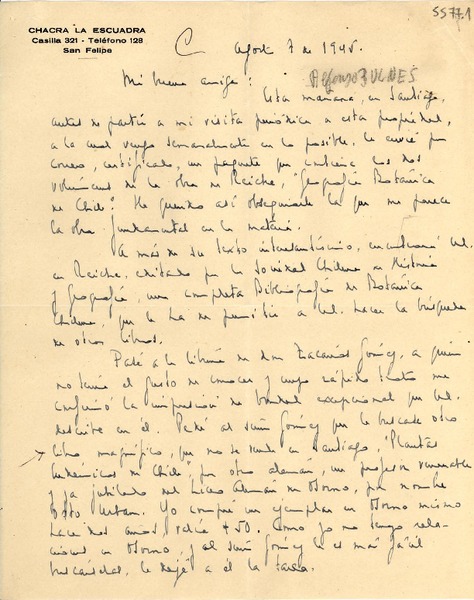 5577.1
CHACRA LA ESCUADRA
Casilla 321 - Teléfono 128
San Felipe
Agosto 7 de 1945.
Mi buen amigo: Alfonso BULNES
Esta mañana, en Santiago,
antes de partir a mi visita periódica a esta propiedad,
a la cual vengo semanalmente en lo posible, le envié por
correo, certificado, un paquete que contiene los dos
volúmenes de la obra de Reiche, "Geografía Botánica
de Chile". He querido así obsequiarle lo que me parece
la obra fundamental en la materia.
A más de su texto interesantísimo, encontrará Ud.
en Reiche, editado por la Sociedad Chilena de Historia
y Geografía, una completa Bibliografía de Botánica
Chilena, que le ha de permitir a Ud. hacer la búsqueda
de otros libros.
Pasé a la librería de don Zacarías Gómez, a quien
no tenía el gusto de conocer y cuyo rápido trato me
confirmó la impresión de bondad excepcional que Ud.
describe en él. Pedí al señor Gómez que le buscase otro
libro magnífico, que no se vende en Santiago, "Plantas
de Chile", por otro alemán, un profesor venerable
y ya jubilado del Liceo Alemán de Osorno, por nombre
Otto Urban. Yo compré un ejemplar en Osorno mismo
hace dos años, valía $50. Como yo no tengo rela-
ciones en Osorno, y al señor Gómez le es más fácil
buscárselo, le dejé a él la tarea.